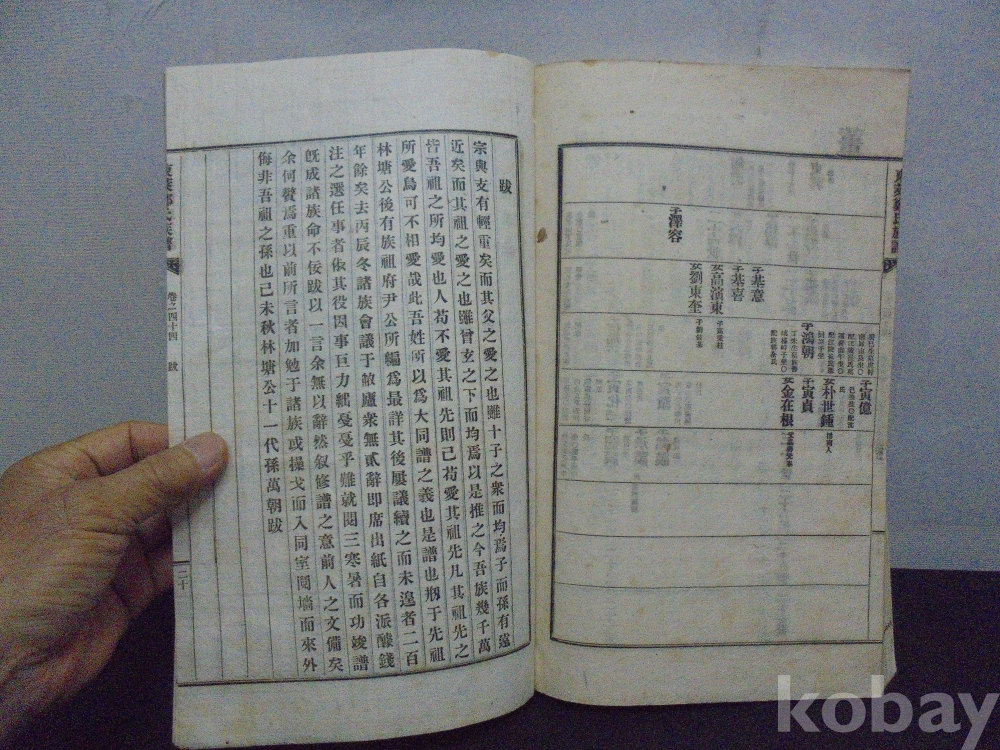 東萊鄭氏族譜
子寅億
女朴世鍾
子寅貞
女金在根
子鴻朝
子基意
子基喜
女高濱東
女劉東奎
子澤容
跋
宗與支有輕重矣而其父之愛之也雖十子之衆而均焉子而孫有遠
近矣而其祖之愛之也雖曾玄之下而均焉以是推之今吾族幾千萬
皆吾祖之所均愛也人苟不愛其祖先則已苟愛其祖先凡其祖先之
所愛烏可不相愛哉此吾姓所以爲大同譜之義也是譜也刱于先祖
林塘公後有族祖府尹公所編爲最詳其後屢議續之而未遑者二百
年餘矣去丙辰冬諸族會議于敝廬衆無貳辭卽席出紙自各派醵錢
注之選任事者俾其役因事巨力綿戞戞乎難就閱三寒暑而功竣譜
旣成諸族命不佞跋以一言余無以辭然叙修譜之意前人之文備矣
余何贅焉重以前所言者加勉于諸族或操戈而入同室鬩墻而來外
侮非吾祖之孫也己未秋林塘公十一代孫萬朝跋
東萊鄭氏族譜
卷之四十四
跋
二十
kobay